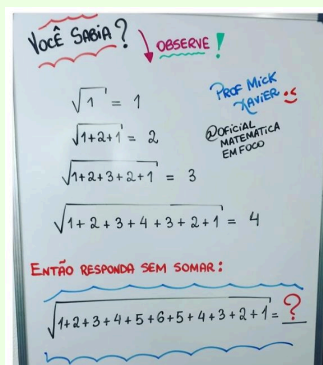 VOCÊ SABIA?
OBSERVE!
PROF MICK
XAVIER
@OFICIAL
MATEMÁTICA
EM FOCO
√1 = 1
√1+2+1 = 2
√1+2+3+2+1 = 3
√1+2+3+4+3+2+1 = 4
ENTÃO RESPONDA SEM SOMAR:
√1+2+3+4+5+6+5+4+3+2+1 = ?